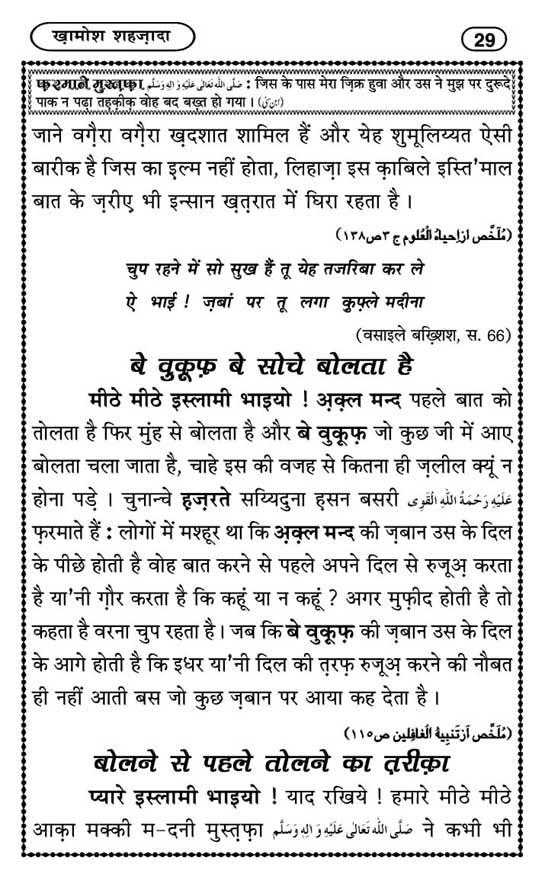 ख़ामोश शहज़ादा
29
फ़रमाने मुस्तफ़ा صَلَّى اللّٰهُ تَعَالٰى عَلَيْهِ وَاٰلِهٖ وَسَلَّم : जिस के पास मेरा ज़िक्र हुवा और उस ने मुझ पर दुरूदे
पाक न पढ़ा तहक़ीक़ वोह बद बख़्त हो गया ।
जाने वग़ैरा वग़ैरा ख़दशात शामिल हैं और येह शुमूलिय्यत ऐसी
बारीक है जिस का इल्म नहीं होता, लिहाज़ा इस क़ाबिले इस्ति'माल
बात के ज़रीए भी इन्सान ख़त़रात में घिरा रहता है ।
(مُلَخَّص از اِحیاءُ الْعُلوم ج ٣ ص ١٣٨)
चुप रहने में सो सुख हैं तू येह तजरिबा कर ले
ऐ भाई ! ज़बां पर तू लगा क़ुफ़्ले मदीना
(वसाइले बख़्शिश, स. 66)
बे वुक़ूफ़ बे सोचे बोलता है
मीठे मीठे इस्लामी भाइयो ! अ़क़्ल मन्द पहले बात को
तोलता है फिर मुंह से बोलता है और बे वुक़ूफ़ जो कुछ जी में आए
बोलता चला जाता है, चाहे इस की वजह से कितना ही ज़लील क्यूं न
होना पड़े । चुनान्चे ह़ज़रते सय्यिदुना ह़सन बसरी عَلَيْهِ رَحْمَةُ اللّٰهِ الْقَوِى
फ़रमाते हैं : लोगों में मश्हूर था कि अ़क़्ल मन्द की ज़बान उस के दिल
के पीछे होती है वोह बात करने से पहले अपने दिल से रुजूअ़ करता
है या'नी ग़ौर करता है कि कहूं या न कहूं ? अगर मुफ़ीद होती है तो
कहता है वरना चुप रहता है । जब कि बे वुक़ूफ़ की ज़बान उस के दिल
के आगे होती है कि इधर या'नी दिल की त़रफ़ रुजूअ़ करने की नौबत
ही नहीं आती बस जो कुछ ज़बान पर आया कह देता है ।
(مُلَخَّص اَز تَنبِیهُ الْغافِلین ص ١١٥)
बोलने से पहले तोलने का त़रीक़ा
प्यारे इस्लामी भाइयो ! याद रखिये ! हमारे मीठे मीठे
आक़ा मक्की म-दनी मुस्त़फ़ा صَلَّى اللّٰهُ تَعَالٰى عَلَيْهِ وَاٰلِهٖ وَسَلَّم ने कभी भी